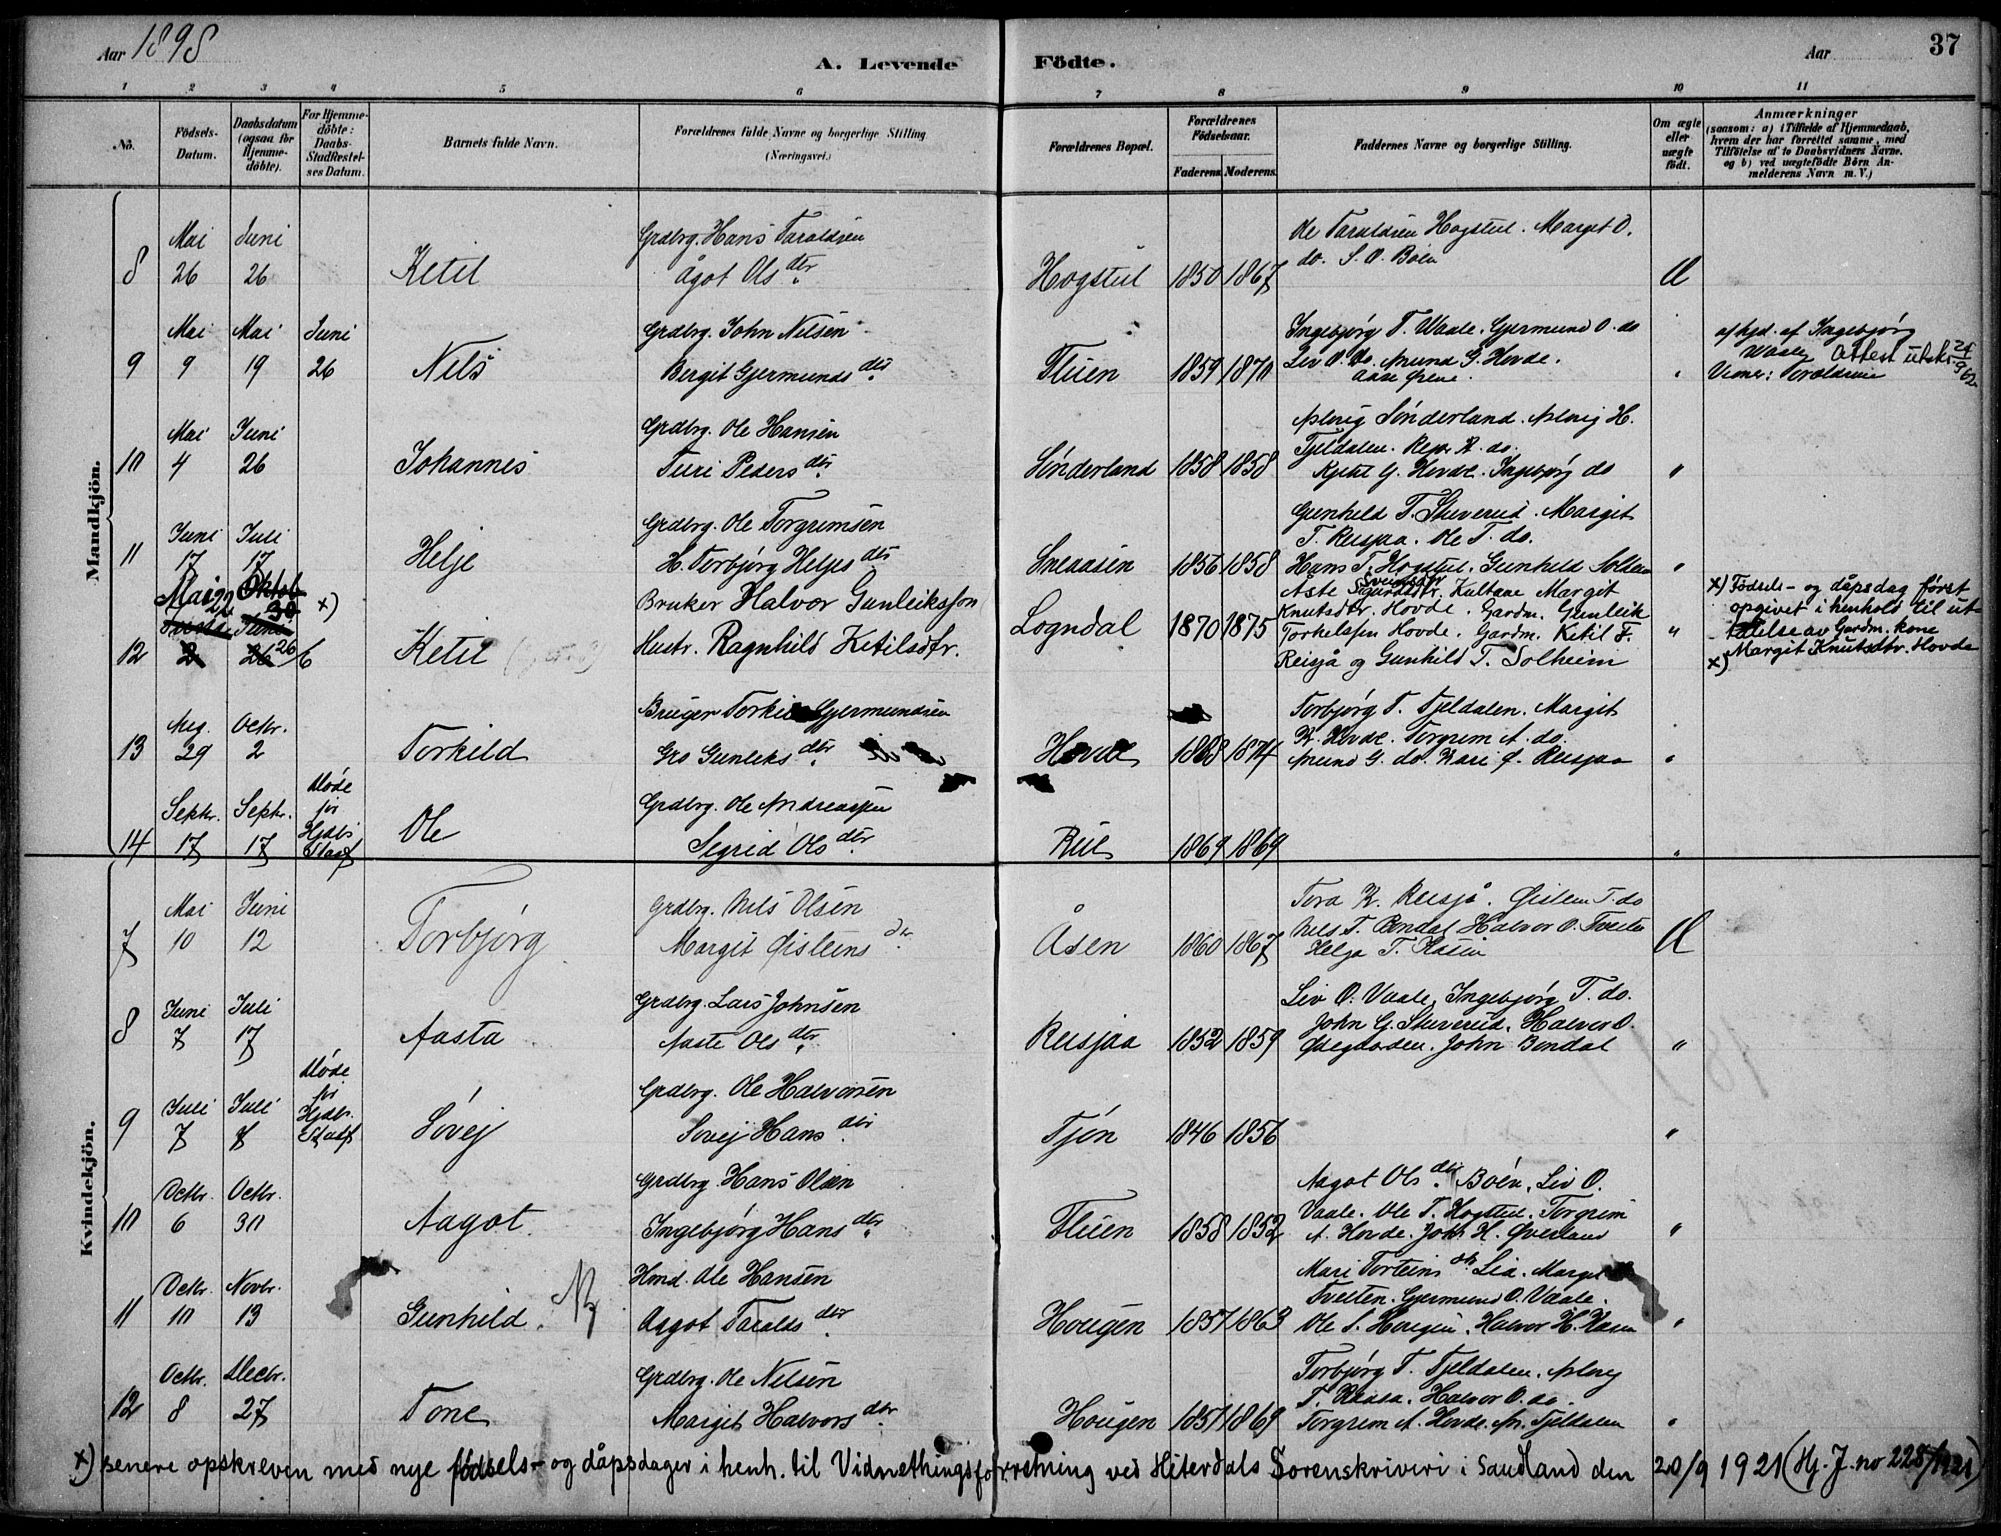 Aar 1898
A. Levende Födte.
Aar
37
1 2 3 4 5 6 7 8 9 10 11
No.
Födsels-Datum.
Daabsdatum (ogsaa for Hjemme-döbte).
For Hjemme-döbte: Daabs-Stadfæstelses Datum.
Barnets fulde Navn.
Forældrenes fulde Navne og borgerlige Stilling (Næringsvei.)
Forældrenes Bopæl.
Forældrenes Födselsaar.
Faderens. Moderens.
Faddernes Navne og borgerlige Stilling.
Om ægte eller uægte födt.
Anmærkninger
(saasom: a) i Tilfælde af Hjemmedaab, hvem der har forrettet samme, med Tilföielse af to Daabsvidners Navne, og b) ved uægtefödte Börn Anmelderens Navn m. V.)
Mandkjön.
8 Mai 26 Juni 26 Ketil
Grdbrg. Hans Taraldsen
Ågot Ols dtr.
Hogstul 1850 1867
Taraldsen Hogstul. Margit O.
do. S. O. Böen
9 Mai 9 Mai 19 Juni 26 Nils
Grdbrg. John Nilsen
Bergit Gjermunds dtr.
Fluen 1859 1870
Ingebjørg T. Waale. Gjermund O. do
Liv O. do. Amund G. Hovde.
Aase
af Ingebjørg
Waale Attest utskr. 24/9 62
Forældrene
10 Mai 4 Juni 26 Johannes
Grdbrg. Ole Hansen
Turi Peders dtr.
Sönderland 1858 1858
Aslaug Sönderland. Aslaug H.
Tjeldalen. K. do.
Kjetil G. Hovde. Ingebjørg do "
11 Juni 17 Juli 17 Helje
Grdbrg. Ole Torgrimsen
H. Torbjørg Heljes dtr.
Sneaasen 1856 1858
Gunhild T. Skuverud. Margit
T. Reisjaa. Ole T. do.
Hans T. Hogstul. Gunhild "
12 Mai 22 Oktob 30 x) 26/6 Ketil
Bruker Halvor Gunleiksson
Hustr. Ragnhild Ketilsdtr.
Logndal 1870 1875
Aste Sveinsdtr. Kultane Margit
Knutsdtr. Hovde. Gardm. Gunleik
Torkelsen Hovde. Gardm. Ketil F.
Reisjå og Gunhild T. Solheim "
x) Födsels- og dåpsdag först
opgivet i henhold til ut-
talelse av Gardm. kone
Margit Knutsdtr. Hovde
x)
13 Aug. 29 Octbr. 2 Torkild
Bruger Torkil Gjermundsen
Gro Gunleks dtr.
Hovde 1868 1874
Torbjørg T. Tjeldalen. Margit
K. Hovde. Torgrim A. do.
Amund G. do. Kari Reisjaa
14 Septbr. 17 Septbr. 17 Döde för Hjdbs Stadf Ole
Grdbrg. Ole Andreassen
Sigrid Ols dtr.
Rue 1869 1869 "
Kvindekjön.
7 Mai 10 Juni 12 Torbjørg
Grdbrg. Nils Olsen
Margit Øisteins dtr.
Åsen 1860 1867
Tora K. Reisjå. Øistein T. do
Nils T. Bondal Halvor O. Tveiten
Helga T. Aasen
8 Juni 7 Juli 17 Aasta
Grdbrg. Lars Johnsen
Aaste Ols dtr.
Reisjaa 1852 1859
Liv O. Vaale. Ingebjørg T. do.
John G. Skuverud. Halvor O.
Øegarden. John Bondal "
9 Juli 7 Juli 7 Döde för Hjdbs. Stadf Sövej
Grdbrg. Ole Halvorsen
Sövej Hans dtr.
Tjön 1846 1856 "
10 Octbr. 6 Octbr. 30 Aagot.
Grdbrg. Hans Olsen
Ingebjørg Hans dtr.
Fluen 1858 1852
Aagot Ols dtr. Böen. Liv O.
Vaale. Ole T. Hogstul. Torgrim
A. Hovde. Joh H. Øverland "
11 Octbr. 10 Novbr. 13 Gunhild.
Hmd. Ole Hansen
Aagot Taralds dtr.
Hougen 1857 1863
Mari Torteins dtr. Lia. Margit
Tveiten. Gjermund O. Vaale.
Ole S. Hougen. Halvor H. Aasen "
12 Octbr. 8 Decbr. 27 Tone
Grdbrg. Ole Nilsen
Margit Halvors dtr.
Hougen 1857 1869
Torbjørg T. Tjeldalen. Aslaug
T. Raasa. Halvor O. do.
Torgrim A. Hovde. A. Tjeldalen "
x) senere opskreven med nye födsels- og dåpsdager i henh. til Vidnethingsforretning ved Hiterdals Sorenskriveri i Sauland den 20/9 1921 (Hj. J. no 228/1921)